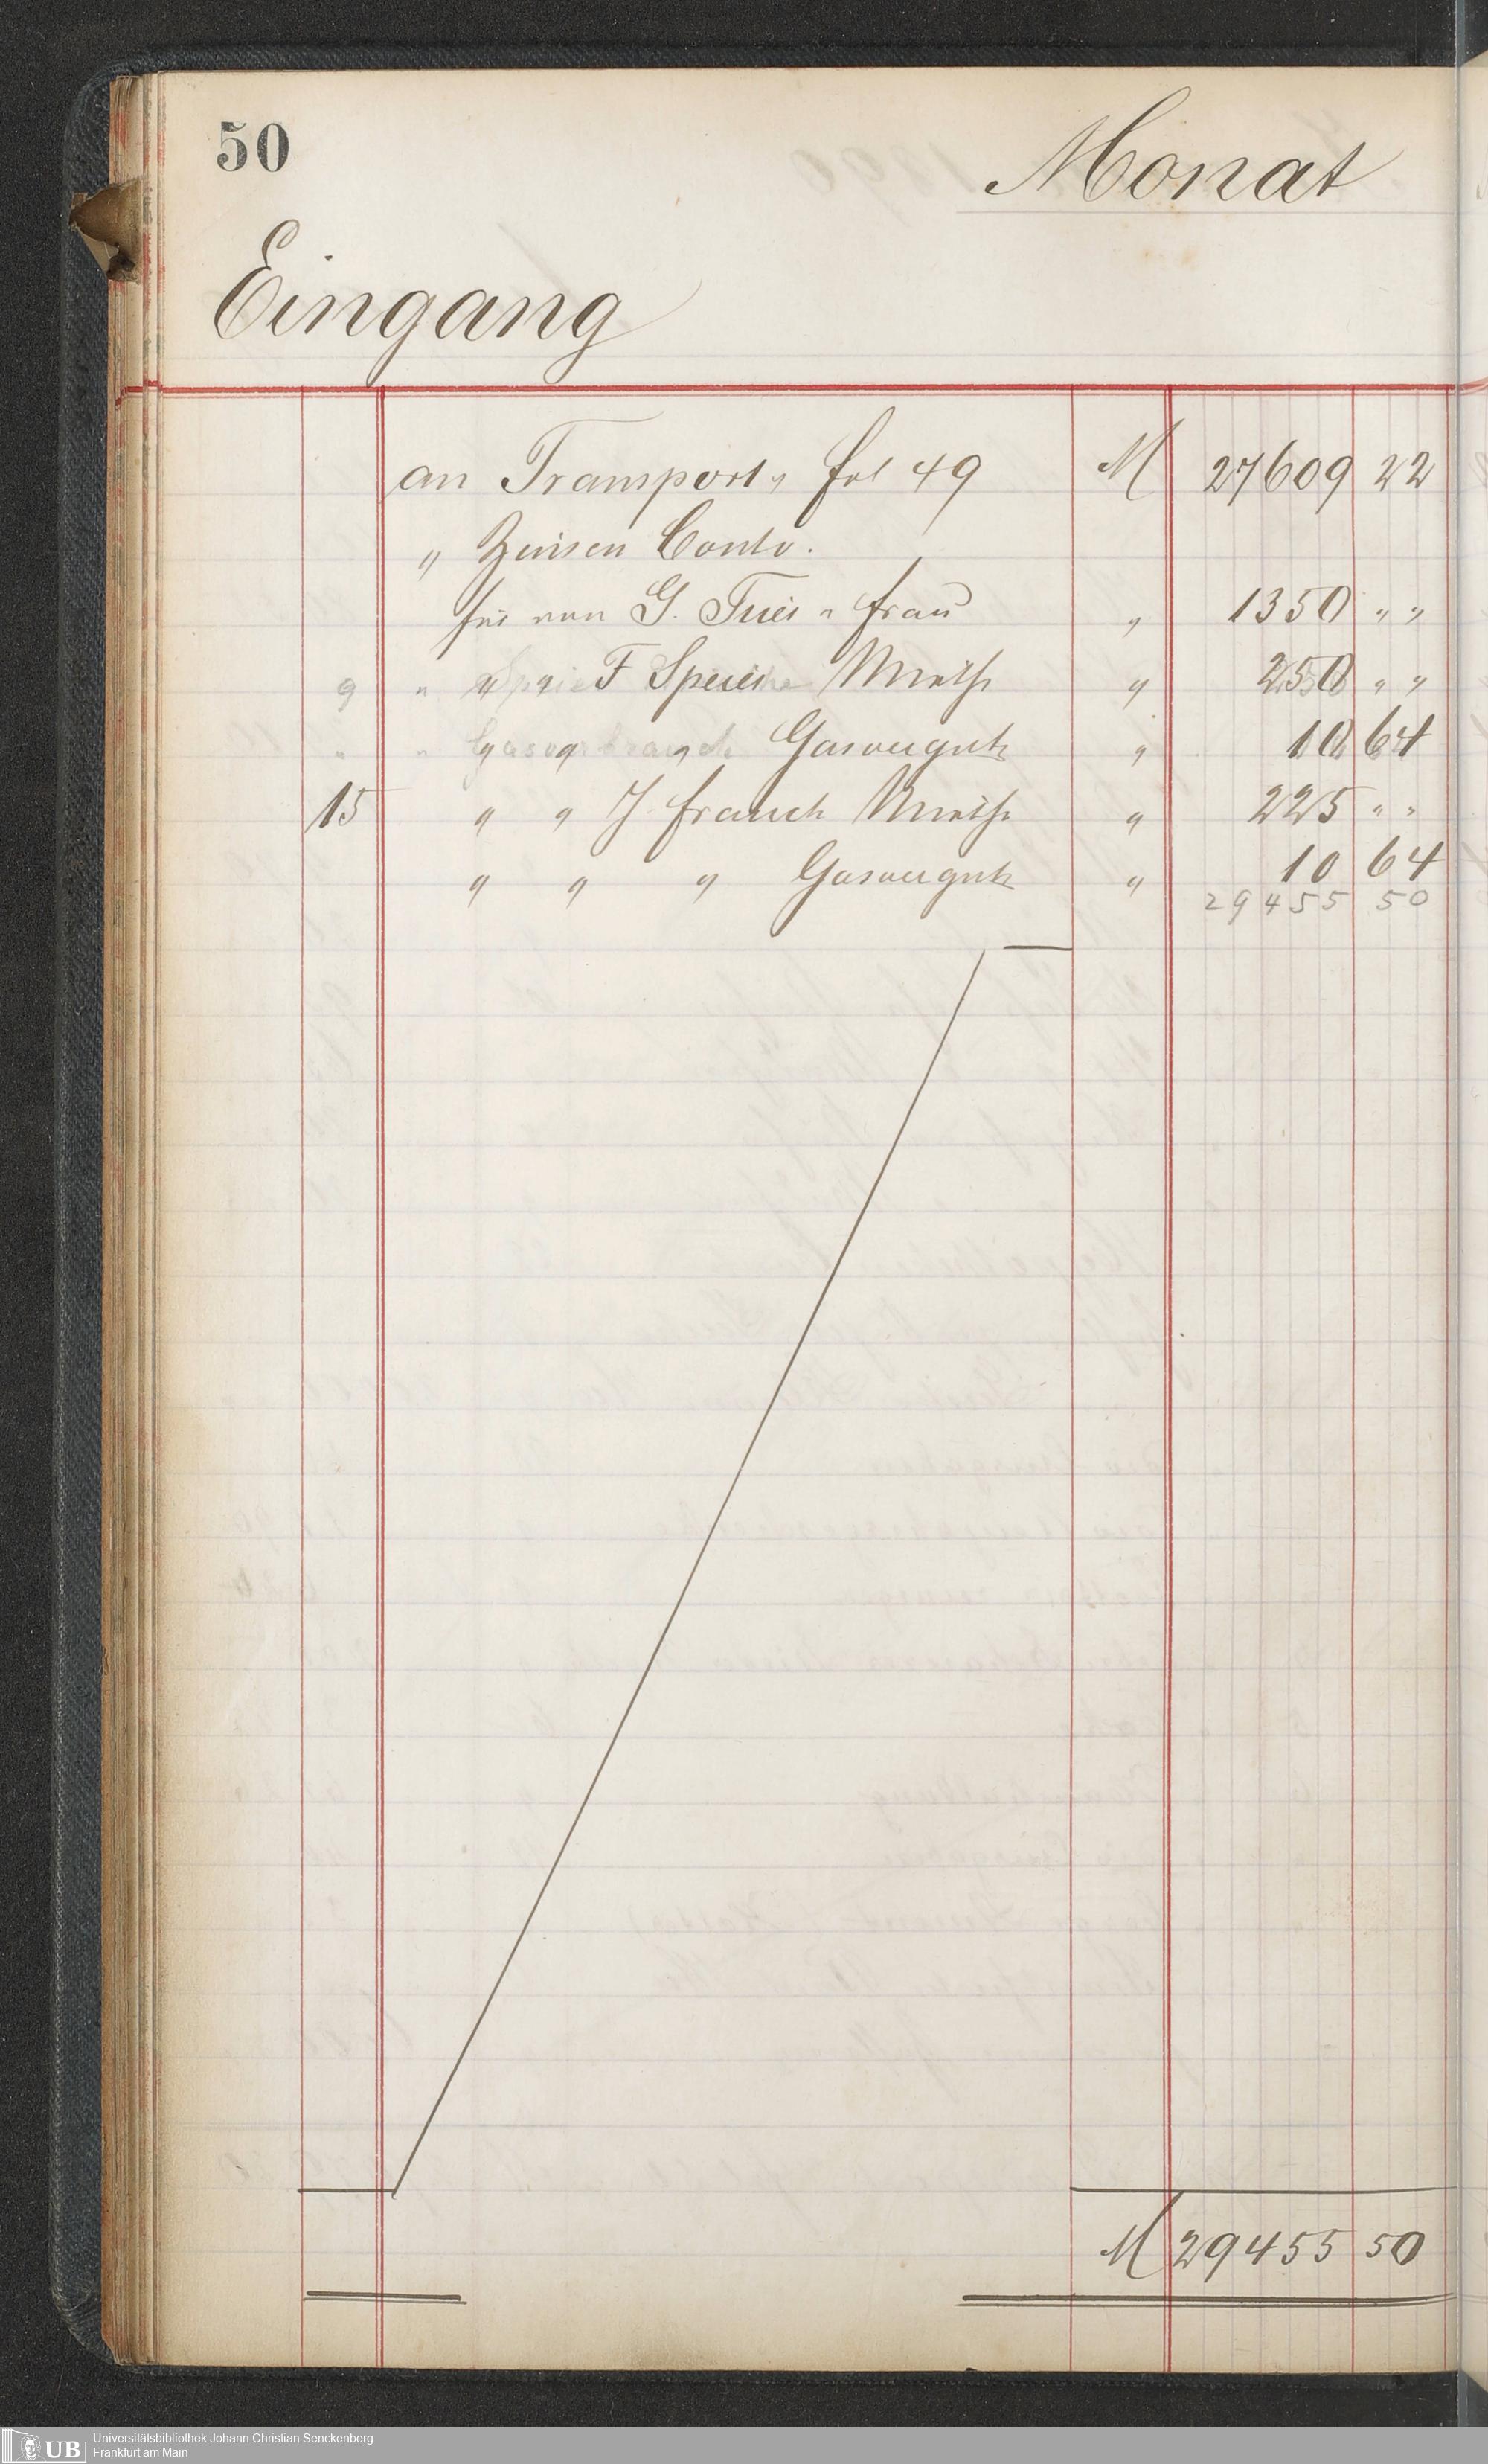 50
Monat
Eingang
an Transport " fol 49 M 27609 22
" Zinsen Conto.
für von G. " Frau " 1350 " "
9 " " " F Speier Miethe " 250 " "
" " " " " Gasvergut " 10 64
15 " " J. Franck Miethe " 225 " "
" " " Gasvergut " 10 64
29455 50
M 29455 50
UB
Universitätsbibliothek Johann Christian Senckenberg
Frankfurt am Main